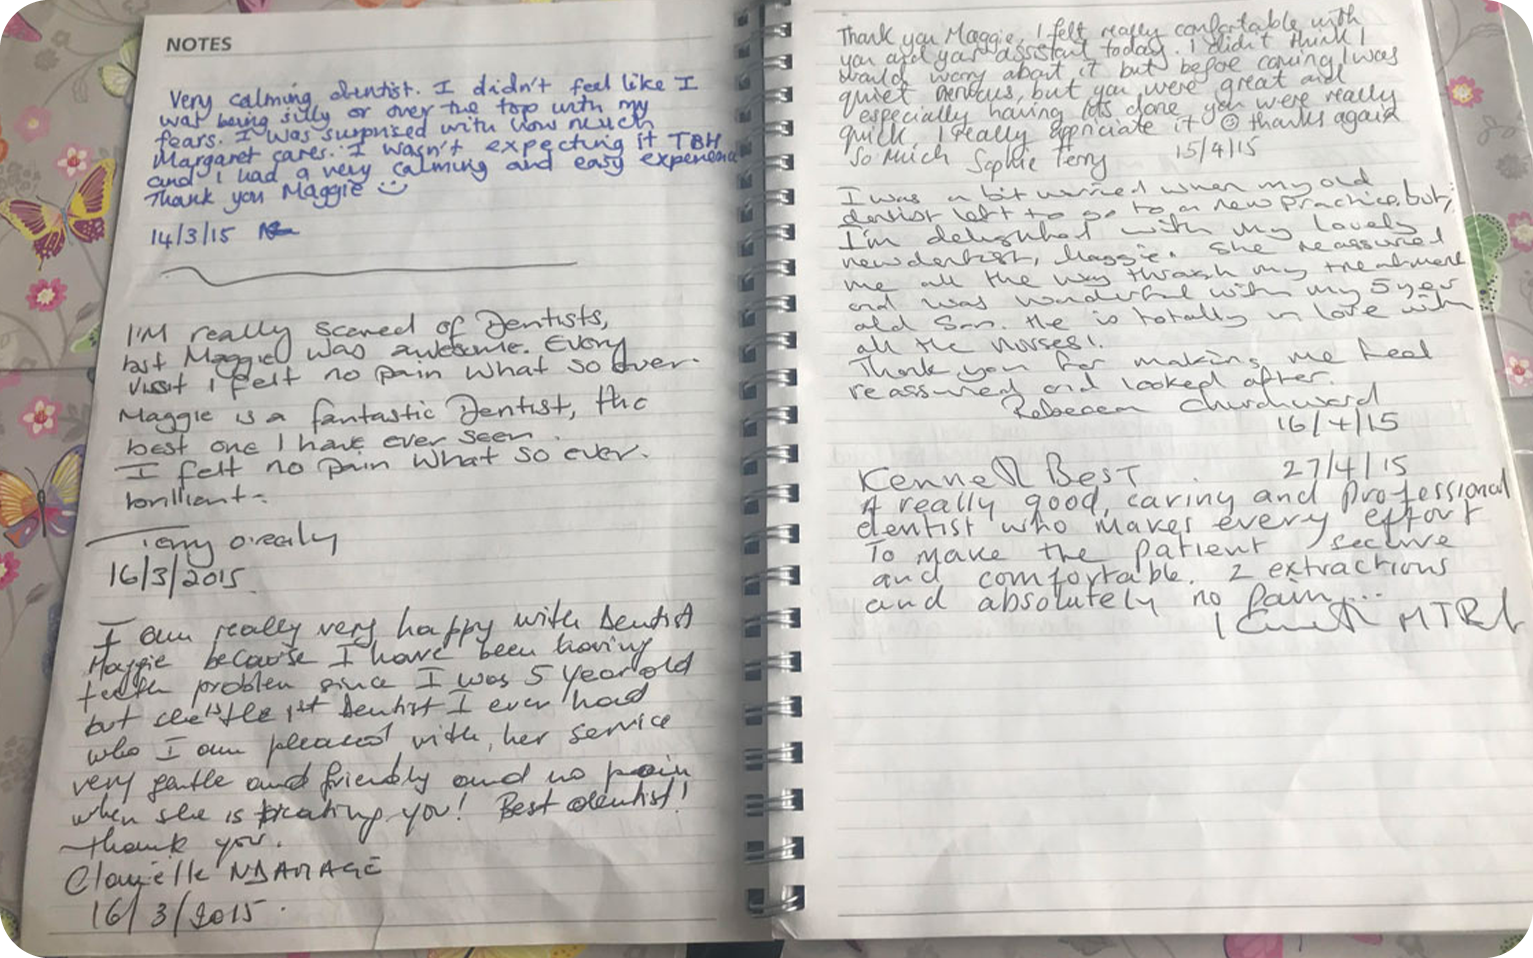 NOTES
Very calming dentist. I didn't feel like I
was being silly or over the top with my
fears. I was surprised with how much
Margaret cares. I wasn't expecting it TBH
and I had a very calming and easy experience
Thank you Maggie
14/3/15
I'M really scared of Dentists,
but Maggie was awesome. Every
visit I felt no pain what so over.
Maggie is a fantastic Dentist, the
best one I have ever seen.
I felt no pain what so ever.
brilliant-
Terry o'reaily
16/3/2015.
I am really very happy with Dentist
Maggie because I have been having
teeth problem since I was 5 year old
but she is the 1st Dentist I ever had
who I am pleased with, her service
very gentle and friendly and no pain
when she is treating you! Best dentist!
thank you.
NDAMAGE
16/3/2015.
Thank you Maggie, I felt really confortable with
you and your assistant today. I didn't think I
would worry about it but before coming I was
quiet nervous, but you were great and
especially having lots done you were really
quick. I really appriciate it ☺ thanks again
so much Sophie Perry 15/4/15
I was a bit worried when my old
dentist left to go to a new practice, but,
I'm delighted with my lovely
new dentist, Maggie. She reassured
me all the way through my treatment
and was wonderful with my 5 year
old son. He is totally in love with
all the nurses!.
Thank you for making me feel
reassured and looked after.
Rebecca Churchward
16/4/15
Kenneth BEST 27/4/15
A really good, caring and professional
dentist who makes every effort
To make the patient secure
and comfortable. 2 extractions
and absolutely no pain...